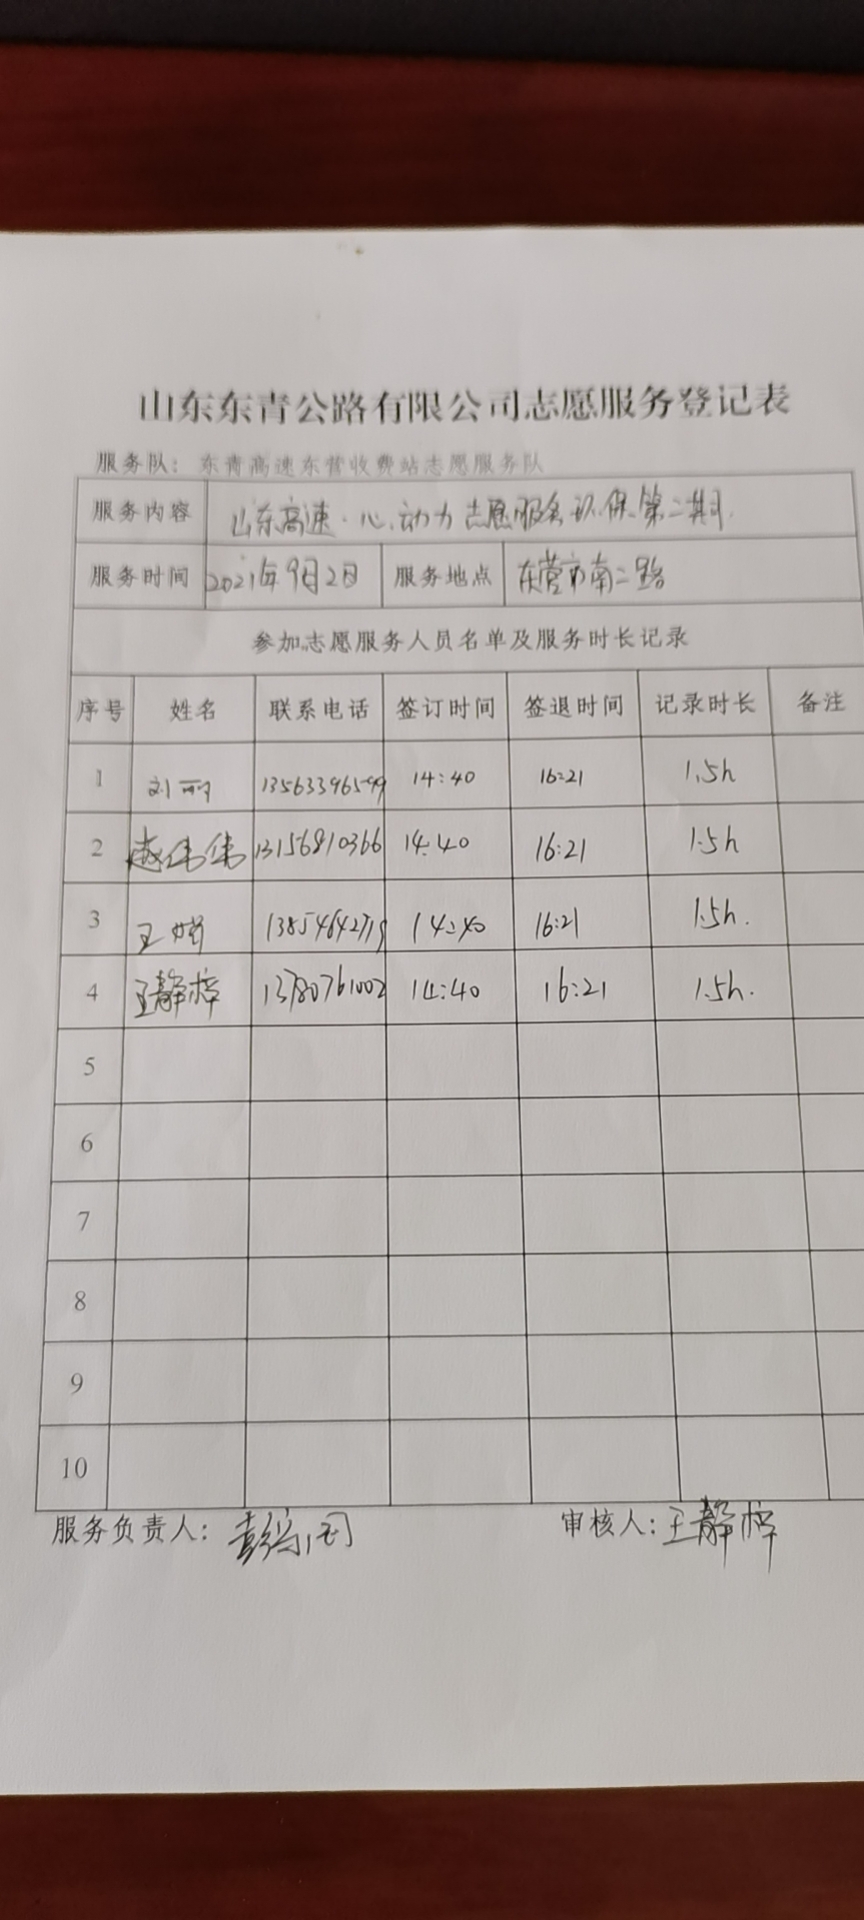 山东东青公路有限公司志愿服务登记表
服务队：东青高速东营收费站志愿服务队
服务内容 山东高速·心动力志愿服务环保第二期
服务时间 2021年9月2日 服务地点 东营市南二路
参加志愿服务人员名单及服务时长记录
序号 姓名 联系电话 签订时间 签退时间 记录时长 备注
1 刘丽 13563396599 14:40 16:21 1.5h
2 赵伟伟 13156810366 14:40 16:21 1.5h
3 王 14:40 16:21 1.5h.
4 王静梓 13780761002 14:40 16:21 1.5h.
5
6
7
8
9
10
服务负责人： 审核人：王静梓